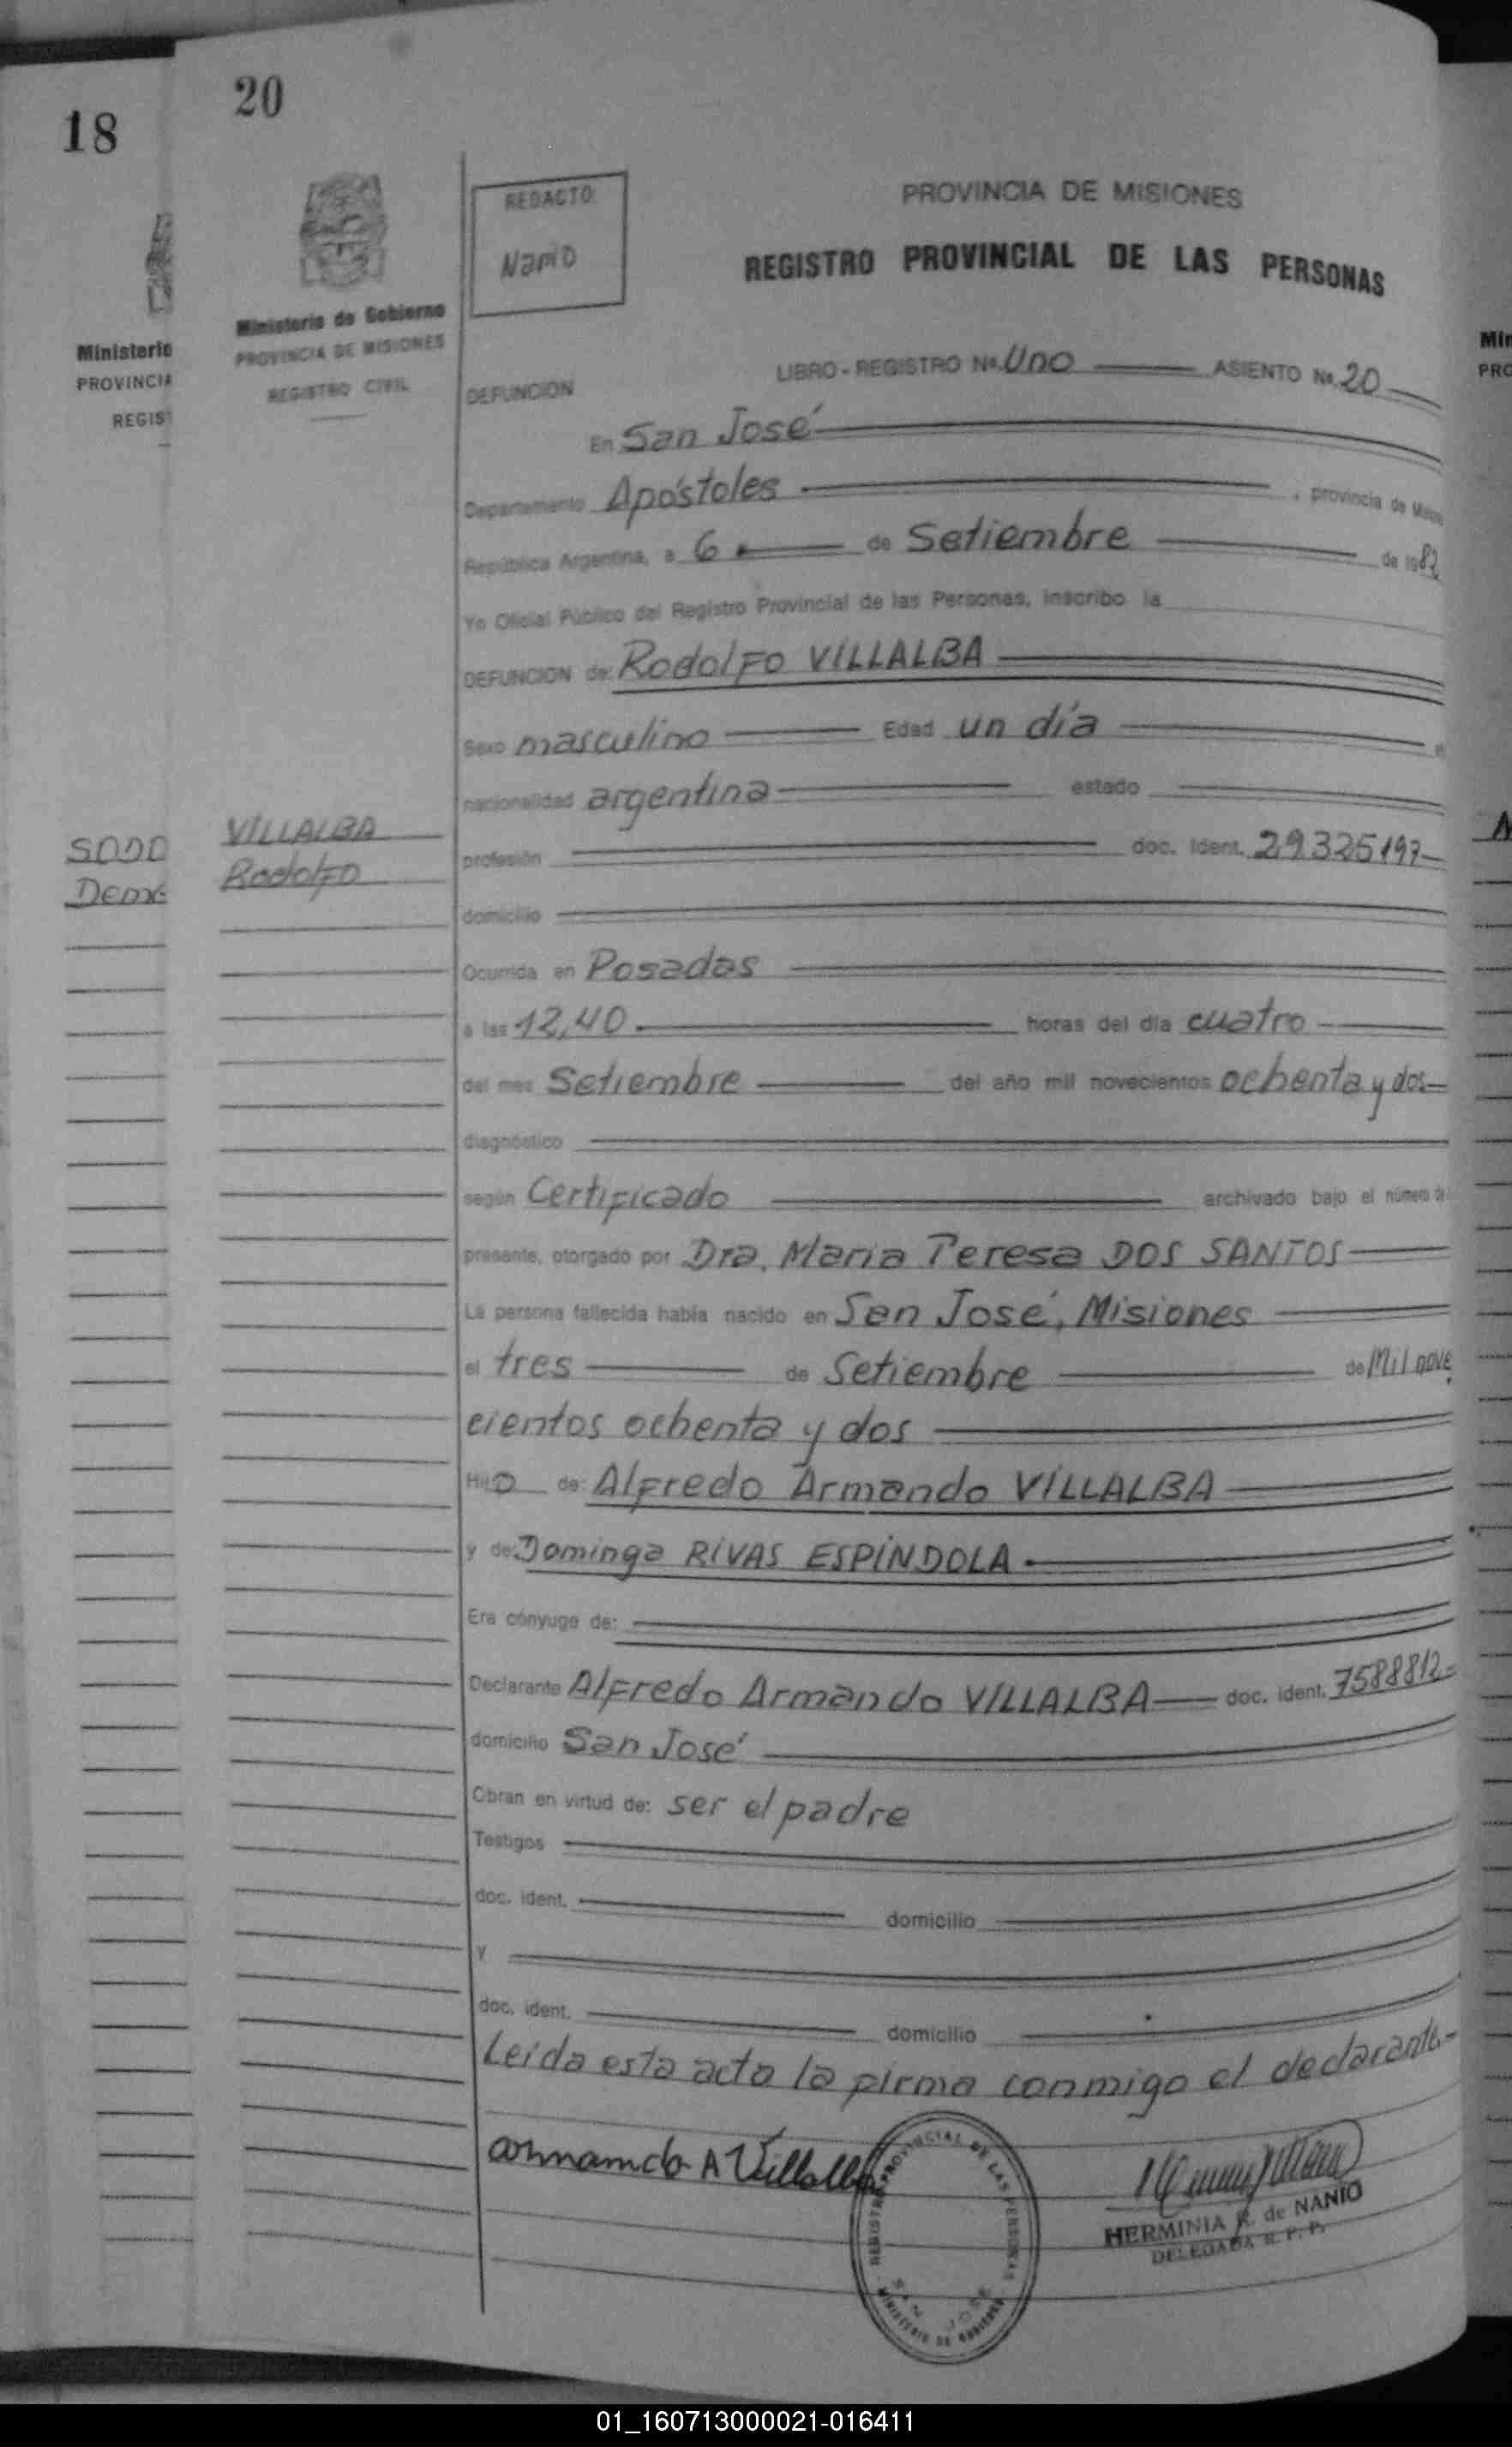 18
20
Ministerio
PROVINCIA
REGIST
SODO
Ministerio de Gobierno
PROVINCIA DE MISIONES
REGISTRO CIVIL
VILLALBA
Rodolfo
REDACTO:
Nanio
PROVINCIA DE MISIONES
REGISTRO PROVINCIAL DE LAS PERSONAS
LIBRO - REGISTRO Nº. Uno ASIENTO Nº. 20
DEFUNCION
En San José
Departamento Apóstoles , provincia de Misiones
República Argentina, a 6 de Setiembre de 1982
Yo Oficial Público del Registro Provincial de las Personas, inscribo la
DEFUNCION de: Rodolfo VILLALBA
Sexo masculino Edad un día
nacionalidad argentina estado
profesión doc. ident. 29.325.197
domicilio
Ocurrida en Posadas
a las 12,40 horas del día cuatro
del mes Setiembre del año mil novecientos ochenta y dos
diagnóstico
según Certificado archivado bajo el número de
presente, otorgado por Dra. Maria Teresa DOS SANTOS
La persona fallecida había nacido en San José, Misiones
el tres de Setiembre de Mil nove
cientos ochenta y dos
Hijo de: Alfredo Armando VILLALBA
y de: Dominga RIVAS ESPINDOLA
Era cónyuge de:
Declarante Alfredo Armando VILLALBA doc. ident. 7588812
domicilio San José
Obran en virtud de: ser el padre
Testigos
doc. ident. domicilio
y
doc. ident. domicilio
Leída esta acta la firma conmigo el declarante
Armando A Villalba
REGISTRO PROVINCIAL DE LAS PERSONAS
SAN JOSE
MINISTERIO DE GOBIERNO
HERMINIA R. de NANIO
DELEGADA R. P. P.
Min
PRO
01_160713000021-016411